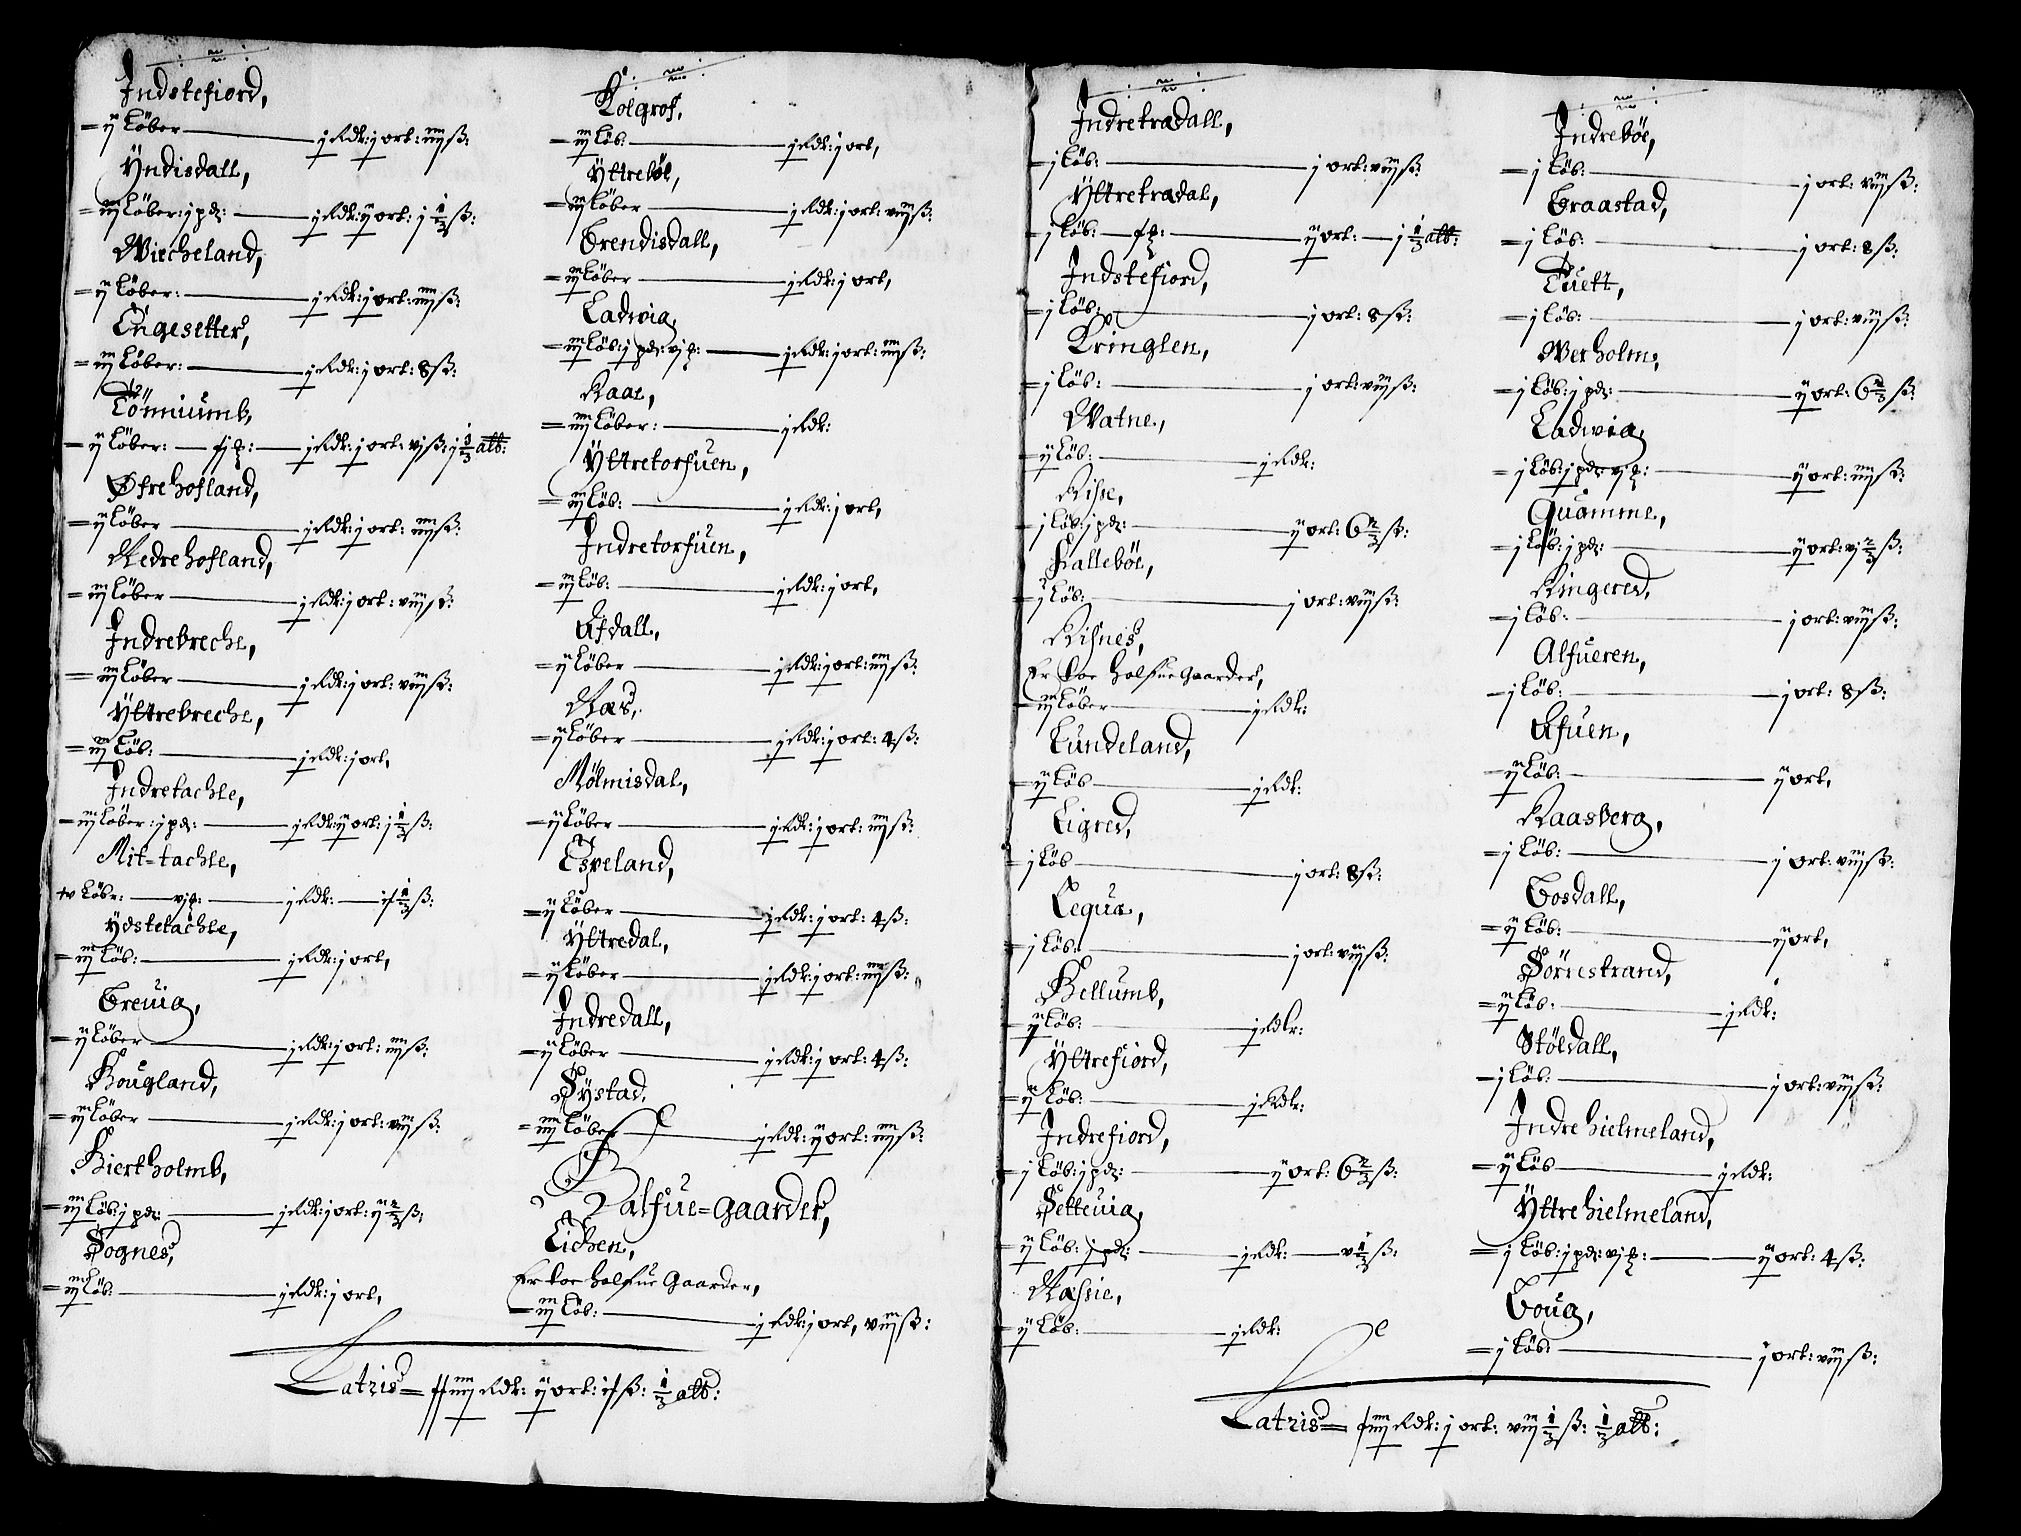 Indstefiord,
ij Löber — j Rdr: j ort: iiij ß:
Yndisdall,
iiij Löber: j pd: — j Rdr: ij ort: j 1/3 ß:
Wiecheland,
ij Löber: — j Rdr: j ort: iiij ß:
Engesetter,
iij Löber: — j Rdr: j ort: 8 ß:
Tönniumb,
ij Löber: — j Rdr: j ort: vj ß: j 1/3 alb:
Øfre hofland,
ij Löber — j Rdr: j ort: iiij ß:
Nedre hofland,
iij Löber — j Rdr: j ort: viij ß:
Indrebreche,
iij Löber — j Rdr: j ort: viij ß:
Yttrebreche,
iij Löb: — j Rdr: j ort,
Indretachle,
iij Löber: j pd: — j Rdr: ij ort: j 1/3 ß:
Mit=tachle,
Löbr: — j Rdr: — 1/3 ß:
Ydstetachle,
iij Löb: — j Rdr: j ort,
Breuig,
ij Löber — j Rdr: j ort: iiij ß:
Hougland,
iij Löber — j Rdr: j ort: viij ß:
Hiertholmb,
iij Löb: j pd: — j Rdr: j ort: ij 2/3 ß:
Sognes,
iij Löb: — j Rdr: j ort,
Kolgrof,
iij Löb: — j Rdr: j ort,
Yttreböe,
iij Löber — j Rdr: j ort: viij ß:
Brendisdall,
iij Löber — j Rdr: j ort,
Ladwig,
iij Löb: j pd: vj — j Rdr: j ort: iiij ß:
Kaae,
iiij Löber: — j Rdr:
Yttretorfuen,
iij Löb: — j Rdr: j ort,
Indretorfuen,
iij Löb: — j Rdr: j ort,
Afdall,
ij Löber — j Rdr: j ort: iiij ß:
Næs,
ij Löber — j Rdr: j ort: 4 ß:
Mölmisdal,
ij Löber — j Rdr: j ort: iiij ß:
Espeland,
ij Löber — j Rdr: j ort: 4 ß:
Yttredal,
ij Löber — j Rdr: j ort: iiij ß:
Indredall,
ij Löber — j Rdr: j ort: 4 ß:
Systad,
iiij Löber — j Rdr: ij ort: iiij ß:
Halfue=gaarder,
Eichen,
Er toe halfue Gaarder,
iij Löb: — j Rdr: j ort, viij ß:
Latris= iiij Rdr: ij ort: ß: 1/3 alb:
Indretradall,
j Löb: — j ort: viij ß:
Yttretradal,
j Löb: — ij ort: — j 1/3 alb:
Indstefiord,
j Löb: — j ort: 8 ß:
Kringlen,
j Löb: — j ort: viij ß:
Watne,
ij Löb: — j Rdr:
Risse,
j Löb: j pd: — ij ort: 6 2/3 ß:
Halleböe,
j Löb: — j ort: viij ß:
Risnes,
Er toe halfue Gaarder,
iij Löber — j Rdr:
Lundeland,
ij Löb — j Rdr:
Eigred,
j Löb — j ort: 8 ß:
Lequa,
j Löb: — j ort: viij ß:
Hellumb,
ij Löb: — j Rdr:
Yttrefiord,
ij Löb: — j Rdr:
Indrefiord,
j Löb: j pd: — ij ort: 6 2/3 ß:
Setteuig,
ij Löb: j pd: — j Rdr: — v 1/3 ß:
Næssie,
ij Löb: — j Rdr:
Indreböe,
j Löb: — j ort: viij ß:
Graastad,
j Löb: — j ort: 8 ß:
Tuett,
j Löb: — j ort: viij ß:
Werholm,
j Löb: j pd: — ij ort: 6 2/3 ß:
Ladwig,
j Löb: j pd: vj — ij ort: iiij ß:
Quamme,
j Löb: j pd: — ij ort: vj 2/3 ß:
Ringered,
j Löb: — j ort: viij ß:
Alfueren,
j Löb: — j ort: 8 ß:
Afuen,
ij Löb: — ij ort,
Raasberg,
j Löb: — j ort: viij ß:
Bosdall,
ij Löb: — ij ort,
Sörrestrand,
ij Löb: — j Rdr:
Stöldall,
j Löb: — j ort: viij ß:
Indrehielmeland,
ij Löb — j Rdr:
Yttrehielmeland,
j Löb: j pd: vj — ij ort: 4 ß:
Boug,
j Löb: — j ort: viij ß:
Latris= iiij Rdr: j ort: viij 1/3 ß: 1/3 alb: